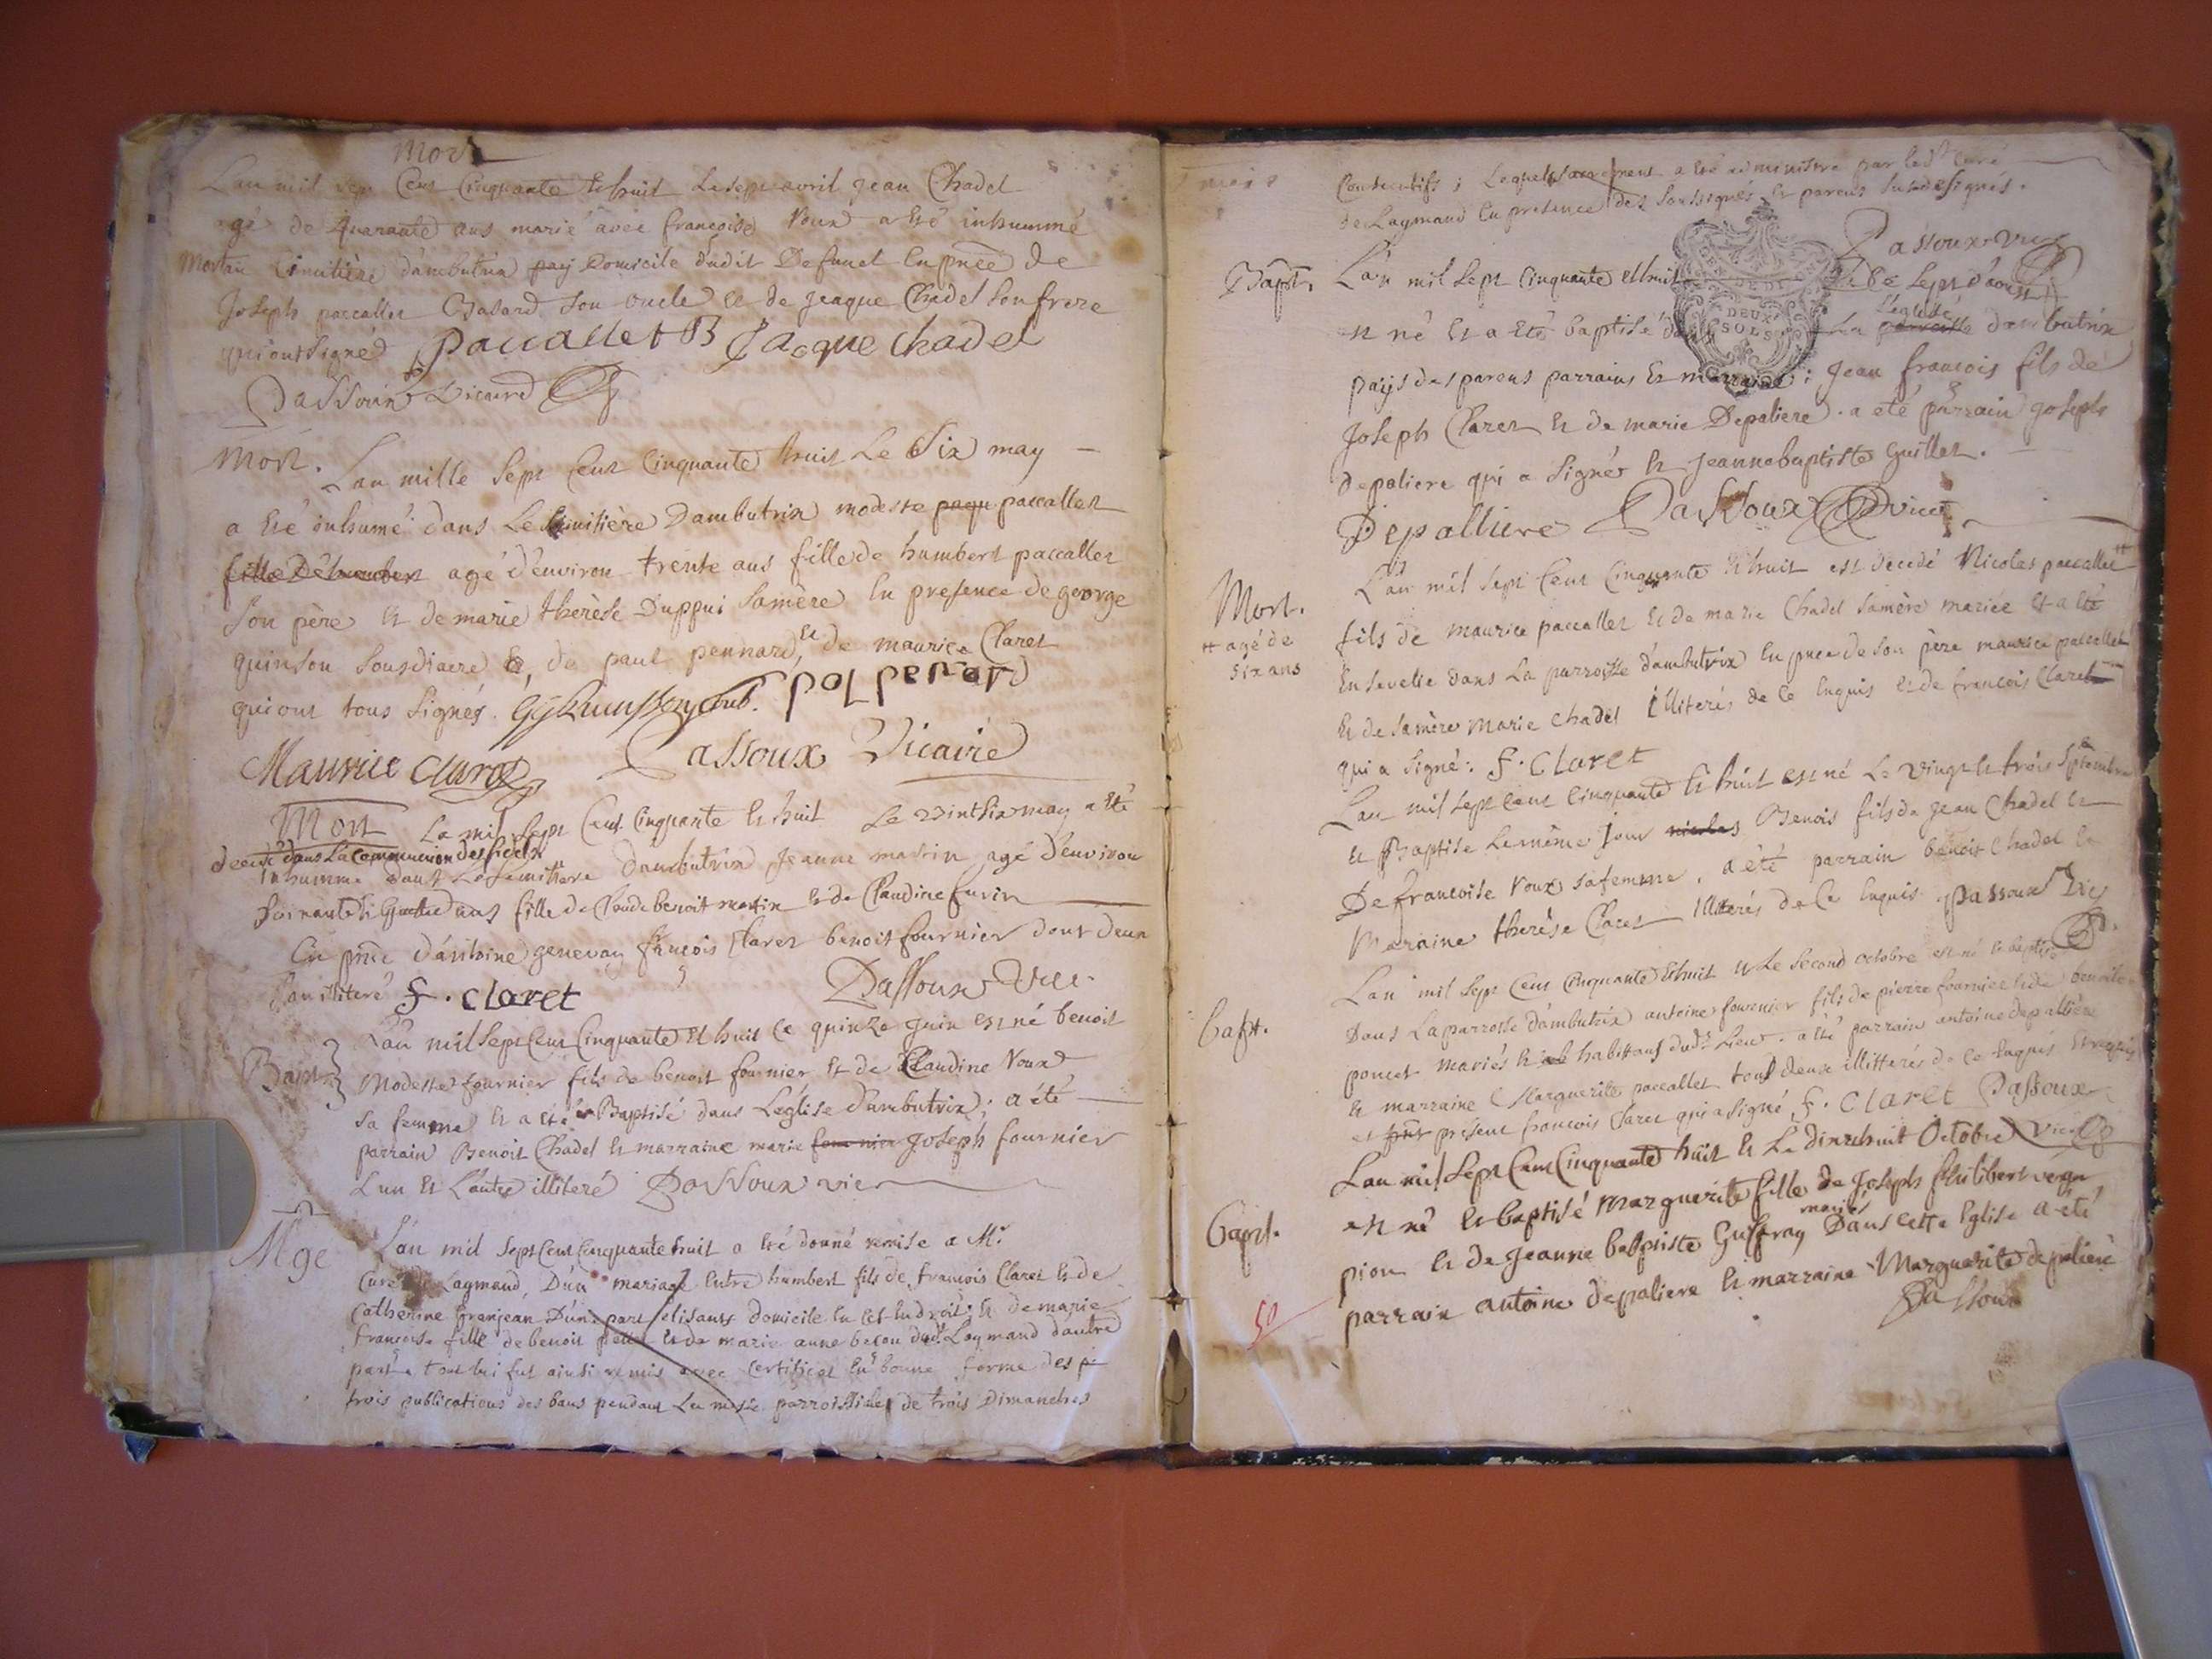 Mort
Lan mil sept Cent Cinquante et huit Le sept avril jean Chadel
agé de quarante ans marié avec francoise Roux a eté inhummé
Mort au Cimitière dambutrix pay Domicile dudit Defunct en pnce de
Joseph paccallet Batard son oncle et de jeaque Chadel son frere
qui ont signé paccallet B Jacque chadel
Dassoux vicaire
Mort. Lan mille Sept Cent Cinquante huit Le Six may
a eté inhumé dans Le Cimitière Dambutrix modeste paqu paccallet
fille De humbert agé d'environ trente ans fille de humbert paccallet
son père et de marie therèse Duppui sa mère en presence de george
quinson sousdiacre et, de paul pennard, et de maurice Claret
qui ont tous signés. pol penard
Maurice Claret Dassoux Vicaire
Mort La mil Sept Cent Cinquante et huit Le vintsix may a eté
decedé dans La Communion des fidels
inhumme dans Le Cemitiere Dambutrix Jeanne martin agé d'environ
soixante et quattre ans fille de Claude benoit martin et de Claudine furin
en pnce d'antoine genevay francois Claret benoit fournier dont deux
son illiteré F. Claret Dassoux vic
Bapt Lan mil Sept Cent Cinquante et huit Le quinze juin est né benoit
Modeste fournier fils de benoit fournier et de Claudine Roux
sa femme et a eté Baptisé dans L'eglise d'ambutrix; a été
parrain Benoit Chadel et marraine marie fournier Joseph fournier
L'un et L'autre illiteré Dassoux vic
Mge Lan mil sept Cent Cinquante huit a eté donné remise a Mr
Curé de Lagmand, D'un mariage entre humbert fils de francois Claret et de
Catherine granjean D'une part elisants domicile en cet endroit; et de marie
francoise fille de benoit et de marie anne becou dud. Lagmand d'autre
part. tout lui fut ainsi remis avec certificat en bonne forme des
trois publications des bans pendant La messe parroissiale de trois Dimanches
Consecutifs; Lequel sacrement a eté administre par led. sr Curé
de Lagmand en presence des soussignés et parens susdesignés.
Dassoux vic
Bapt. L'an mil sept Cinquante et huit Le sept d'aoust
DEUX SOLS
est né et a eté baptisé dans L'eglise La parroisse dambutrix
pays des parens parrains et marraine: Jean francois fils de
Joseph Claret et de marie Depaliere. a eté parrain joseph
depaliere qui a signé et jeanne baptiste Guillet.
Depalliere Dassoux vic
Mort. Lan mil sept Cent Cinquante et huit est decedé Nicolas paccallet
agé de six ans
fils de maurice paccallet et de marie Chadel sa mère mariée et a eté
Ensevelie dans La parroisse d'ambutrix en pnce de son père maurice paccallet
et de sa mère marie Chadel illiterés de ce enquis et de francois Claret
qui a signé: F. Claret
Lan mil sept cent cinquante et huit est né Le vingt et trois Septembre
et Baptisé Le même jour nicolas Benois fils de jean Chadel et
De francoise Roux sa femme. a été parrain benoit Chadel et
Maraine therèse Claret illiterés de Ce enquis. Dassoux Vic
Bapt. Lan mil sept Cent Cinquante et huit et Le second octobre est né et baptisé
Dans La parrosse d'ambutrix antoine fournier fils de pierre fournier et de benoite
poncet mariés et habittans dud. Lieux. a eté parrain antoine depallière
et marraine Marguerite paccallet tous deux illitterés de ce enquis et requis
et present francois Claret qui a signé F. Claret Dassoux vic
Bapt. Lan mil sept Cent Cinquante huit et Le dixz huit Octobre
est né et baptisé Marguerite fille de Joseph philibert vergn
pion et de jeanne baptiste Guffray mariés Dans cette Eglise a été
parrain antoine depaliere et marraine Marguerite depaliere
50 Dassoux